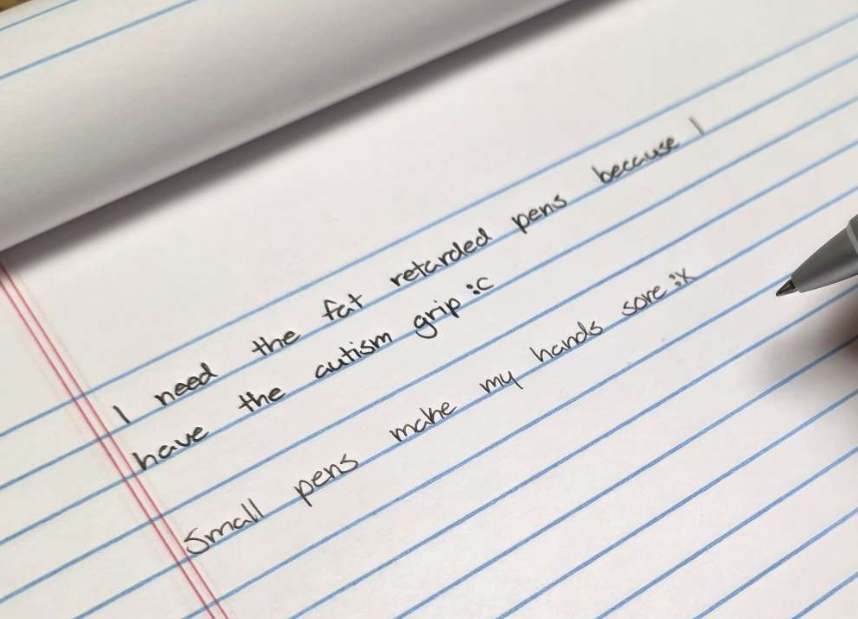 I need the fat retarded pens because I
have the autism grip :c
Small pens make my hands sore :x